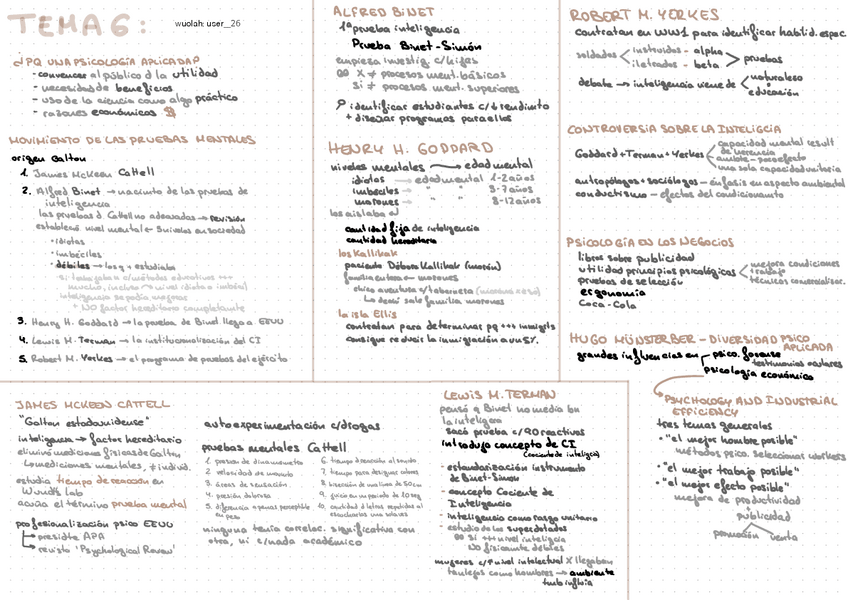 TEMA 6:
wuolah: user_26
¿PQ UNA PSICOLOGÍA APLICADA?
- convencer al público d la utilidad
- necesidad de beneficios
- uso de la ciencia como algo práctico
- razones económicas
MOVIMIENTO DE LAS PRUEBAS MENTALES
origen Galton
1. James McKeen Cattell
2. Alfred Binet → nacimto de las pruebas de
inteligencia
las pruebas d Cattell no adecuadas → revisión
estableció nivel mental
• idiotas
• imbéciles
• débiles → los q + estudiaba
inteligencia se podía mejorar
* NO factor hereditario completamente
3. Henry H. Goddard → la prueba de Binet llega a EEUU
4. Lewis M. Terman → la institucionalización del CI
5. Robert M. Yerkes → el programa de pruebas del ejército
ALFRED BINET
1ª prueba inteligencia
Prueba Binet-Simón
empieza investig. c/hijas
X ≠ procesos ment. básicos
SI ≠ procesos ment. superiores
identificar estudiantes c/↓ rendimto
+ diseñar programas para ellos
HENRY H. GODDARD
niveles mentales → edad mental
idiotas → edad mental 1-2 años
imbéciles → " " 3-7 años
morones → " " 8-12 años
los aislaba
cantidad fija de inteligencia
cantidad hereditaria
los Kallikak
paciente Débora Kallikak (morón)
familia entera → morones
chico aventura c/tabernera
Lo demás sale familia morones
la isla Ellis
contratan para determinar pq +++ inmigrts
consigue reducir la inmigración a un 5%.
ROBERT M. YERKES
contratan en WW1 para identificar habilid. espec.
soldados
instruidos - alpha
iletrados - beta
pruebas
debate → inteligencia viene de
naturaleza
educación
CONTROVERSIA SOBRE LA INTELIGCIA
Goddard + Terman + Yerkes
capacidad mental result
de herencia
ambte - poco efecto
una sola capacidad unitaria
antropólogos + sociólogos → énfasis en aspecto ambiental
conductismo → efectos del condicionamto
PSICOLOGÍA EN LOS NEGOCIOS
libros sobre publicidad
utilidad principios psicológicos
mejora condiciones
trabajo
técnicas comercializar.
pruebas de selección
ergonomía
Coca-Cola
HUGO MÜNSTERBER - DIVERSIDAD PSICO
APLICADA
grandes influencias en
psico. forense
testimonios oculares
psicología económica
PSYCHOLOGY AND INDUSTRIAL
EFFICIENCY
tres temas generales
• "el mejor hombre posible"
métodos psico. seleccionar workers
• "el mejor trabajo posible"
• "el mejor efecto posible"
mejora de productividad
publicidad
promoción venta
JAMES MCKEEN CATTELL
"Galton estadounidense"
inteligencia → factor hereditario
eliminó mediciones físicas de Galton
Lo mediciones mentales, + individ.
estudia tiempo de reacción en
Wundt's Lab
acuña el término prueba mental
profesionalización psico EEUU
presidte APA
revista 'Psychological Review'
autoexperimentación c/drogas
pruebas mentales Cattell
1. presión de dinamómetro
2. velocidad de movmto
3. áreas de sensación
4. presión dolorosa
5. diferencia apenas perceptible
en peso
6. tiempo d reacción al sonido
7. tiempo para designar colores
8. bisección de una línea de 50cm
9. juicio en un período de 10 seg
10. cantidad d letras repetidas al
escucharlas una sola vez
ninguna tenía correlac. significativa con
otra, ni c/nada académico
LEWIS M. TERMAN
pensó q Binet no medía bn
la inteligcia
sacó prueba c/90 reactivos
introdujo concepto de CI
(cociente de inteligcia)
- estandarización instrumento
de Binet-Simón
- concepto Cociente de
Inteligencia
- inteligencia como rasgo unitario
- estudio de los superdotados
SI +++ nivel inteligcia
NO físicamente débiles
mujeres c/↑ nivel intelectual X llegaban
tan lejos como hombres → ambiente
tmb influía